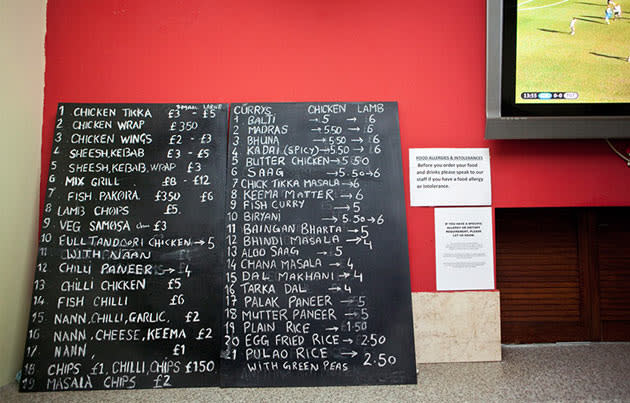 SMALL LARGE
1 CHICKEN TIKKA £3 - £5
2 CHICKEN WRAP £350
3 CHICKEN WINGS £2 - £3
4 SHEESH,KEBAB £3 - £5
5 SHEESH,KEBAB,WRAP £3.
6 MIX GRILL. £8 - £12
7 FISH PAKORA. £350 £6
8 LAMB CHOPS £5.
9 VEG SAMOSA £3
10 FULL TANDOORI CHICKEN → 5
11 WITH NAAN
12 CHILLI PANEER → 4
13 CHILLI CHICKEN £5
14 FISH CHILLI £6
15 NANN,CHILLI,GARLIC, £2
16 NANN, CHEESE, KEEMA £2
17 NANN, £1
18 CHIPS £1, CHILLI, CHIPS £150
19 MASALA CHIPS £2
CURRYS CHICKEN LAMB
1 BALTI → 5 → 6
2 MADRAS → 5.50 → 6
3 BHUNA → 5.50 → 6
4 KADAI (SPICY) → 5.50 → 6
5 BUTTER CHICKEN → 5.50
6 SAAG → 5.50 → 6
7 CHICK TIKKA MASALA → 6
8 KEEMA MATTER → 6
9 FISH CURRY → 5
10 BIRYANI → 5.50 → 6
11 BAINGAN BHARTA → 5
12 BHINDI MASALA → 4
13 ALOO SAAG → 5
14 CHANA MASALA → 4
15 DAL MAKHANI → 4
16 TARKA DAL → 4
17 PALAK PANEER → 5
18 MUTTER PANEER → 5
19 PLAIN RICE → 1.50
20 EGG FRIED RICE → 2.50
21 PULAO RICE → 2.50
WITH GREEN PEAS
13:55 0-0
FOOD ALLERGIES & INTOLERANCES
Before you order your food
and drinks please speak to our
staff if you have a food allergy
or intolerance.
IF YOU HAVE A SPECIFIC
ALLERGY OR DIETARY
REQUIREMENT, PLEASE
LET US KNOW.